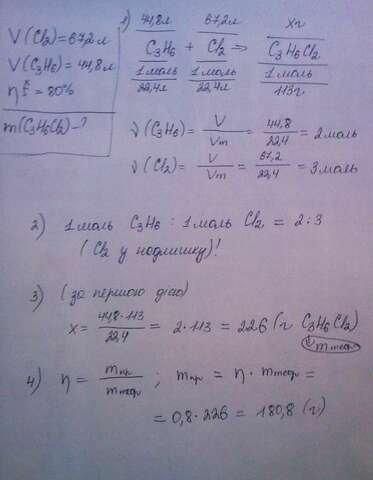 V(Cl₂)=67,2л
V(C₃H₆)=44,8л
η = 80%
m(C₃H₆Cl₂)-?
1) 44,8л 67,2л xг
C₃H₆ + Cl₂ ⇒ C₃H₆Cl₂
1моль 1моль 1моль
22,4л 22,4л 113г
ν(C₃H₆) = V/Vm = 44,8/22,4 = 2 моль
ν(Cl₂) = V/Vm = 67,2/22,4 = 3 моль
2) 1 моль C₃H₆ : 1 моль Cl₂ = 2:3
(Cl₂ у надлишку)!
3) (за першою дією)
x = 44,8·113/22,4 = 2·113 = 226 (г C₃H₆Cl₂)
m теор
4) η = mпр/mтеор ; mпр = η · mтеор =
= 0,8·226 = 180,8 (г)